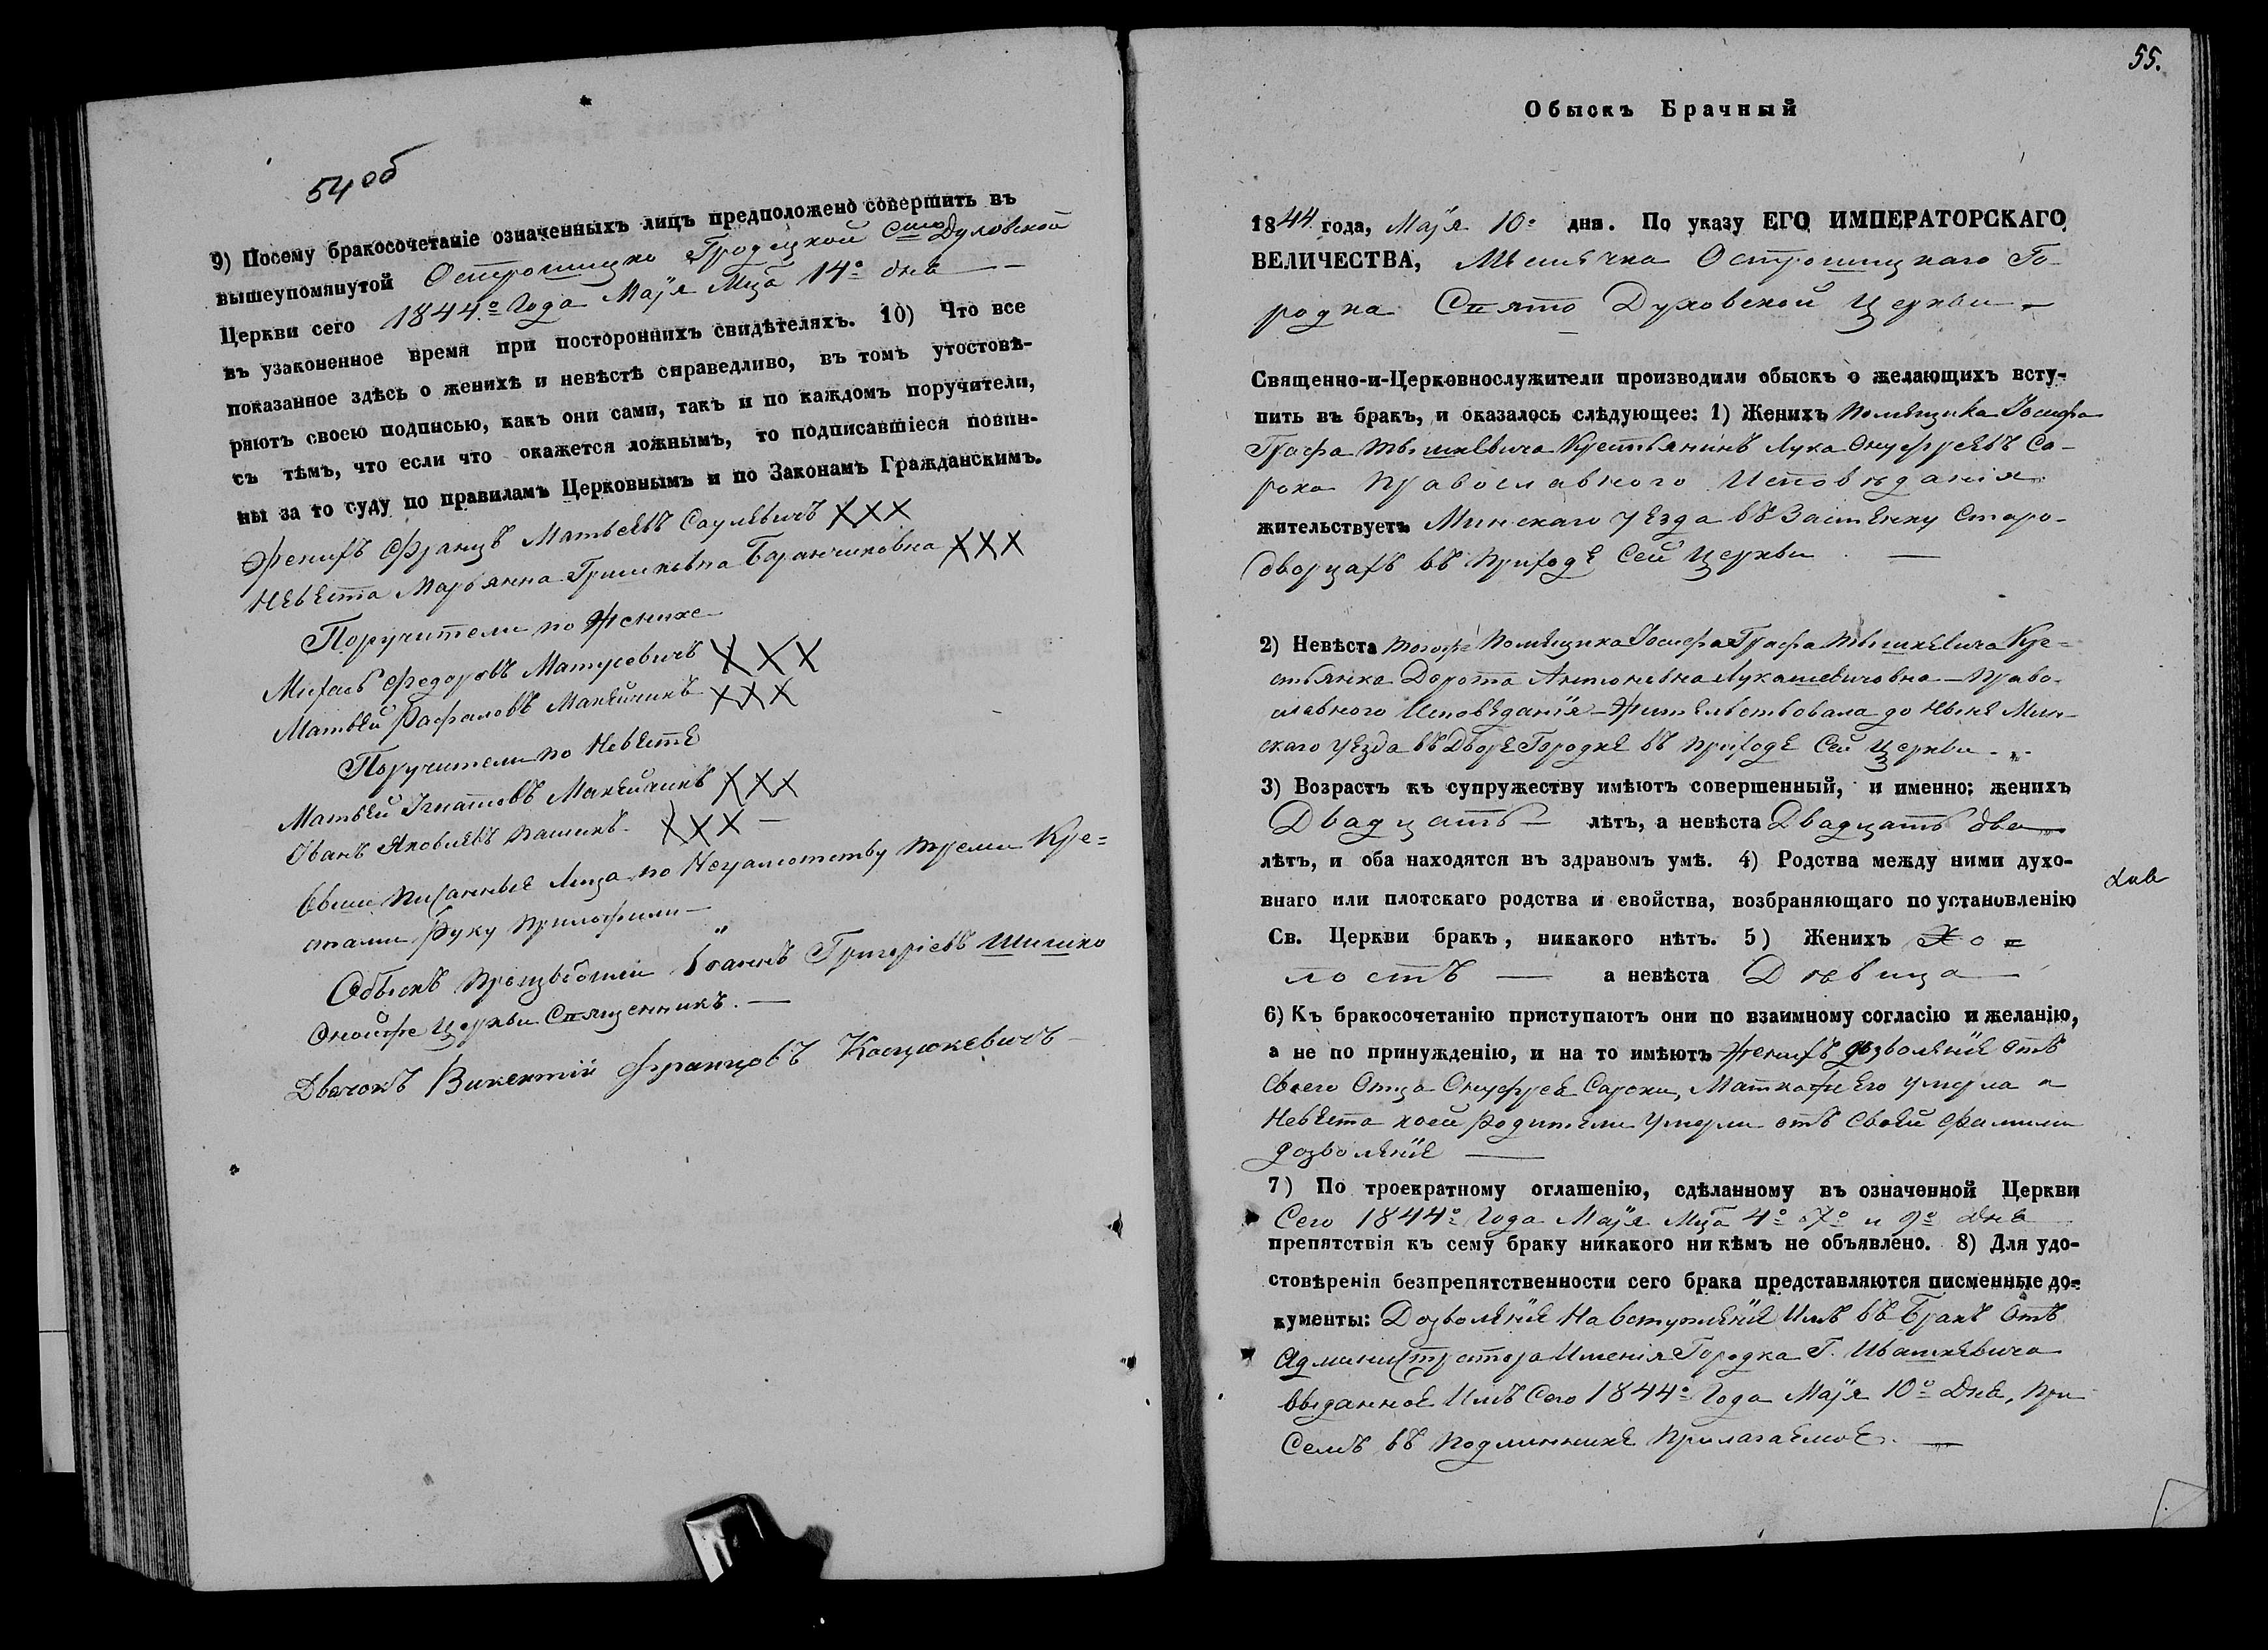 54 об
9) Посему бракосочетаніе означенныхъ лицъ предположено совершить въ
вышеупомянутой Острошицко Городецкой Духовской
Церкви сего 1844.о Года Маја Мца 14о дня
въ узаконенное время при постороннихъ свидѣтеляхъ. 10) Что все
показанное здѣсь о женихѣ и невѣстѣ справедливо, въ томъ утостовѣ-
ряютъ своею подписью, какъ они сами, такъ и по каждомъ поручители,
съ тѣмъ, что если что окажется ложнымъ, то подписавшіеся повин-
ны за то суду по правиламъ Церковнымъ и по Законамъ Гражданскимъ.
Женихъ Францъ Матвеевъ Саулевичъ ХХХ
Невѣста Марьянна Гришковна Баранчиковна ХХХ
Поручители по Женихе
Михась Федоровъ Матусевичъ ХХХ
Матвѣй Рафаловъ Макейчикъ ХХХ
Поручители по Невѣстѣ
Матвѣй Игнатовъ Макейчикъ ХХХ
Иванъ Яковлевъ ХХХ
выше писанные Лица по Неграмотству тремя Кре=
стами Руку приложили
Обыскъ производили Іоаннъ Григоріевъ Шишко
Онойже Церкви Священникъ.
Дьячокъ Викентій Францовъ Костюкевичъ
55.
Обыскъ Брачный
1844 года, Маја 10о дня. По указу ЕГО ИМПЕРАТОРСКАГО
ВЕЛИЧЕСТВА, Мѣстѣчка Острошицкаго Го-
родка Свято Духовской Церкви
Священно-и-Церковнослужители производили обыскъ о желающихъ всту-
пить въ брак, и оказалось слѣдующее: 1) Женихъ Помѣщика Іосифа
Графа Тышкевича Крестьянинъ Лука Онуфріевъ Со-
рока Православного Исповѣданія
жительствуетъ Минскаго уезда въ Застенку Старо-
дворцахъ въ приходе Сей Церкви
2) Невѣста тогоже Помещика Іосифа Графа Тышкевича Кре=
стьянка Дорота Антоневна Лукашевичовна Право-
славного Исповеданія Жительствовала до ныне Мин-
скаго уезда въ Дворе Городке въ приходе Сей Церкви
3) Возрастъ къ супружеству имѣютъ совершенный, и именно: женихъ
Двадцать лѣтъ, а невѣста Двадцать два
лѣтъ, и оба находятся въ здравомъ умѣ. 4) Родства между ними духо-
внаго или плотскаго родства и свойства, возбраняющаго по установленію
Св. Церкви бракъ, никакого нѣтъ. 5) Женихъ Хо=
лостъ а невѣста Дѣвица
6) Къ бракосочетанію приступаютъ они по взаимному согласію и желанію,
а не по принужденію, и на то имѣютъ Женихъ дозволеніе отъ
своего Отца Онуфрея Сароки, Матка же его умерла а
Невеста коей Родители умерли отъ своей Фамилии
дозволеніе
7) По троекратному оглашенію, сдѣланному въ означенной Церкви
Сего 1844о Года Маја Мца 4о 7о и 9о дня
препятствія къ сему браку никакого ни кѣмъ не объявлено. 8) Для удо-
стовѣренія безпрепятственности сего брака представляются писменные до-
кументы: Дозволеніе На вступленіе Имъ въ Бракъ отъ
Администратора Именія Городка Г. Ивашкевича
выданное Имъ Сего 1844о Года Маја 10о Дня, при
Семъ въ подлиннике прилагаемое.